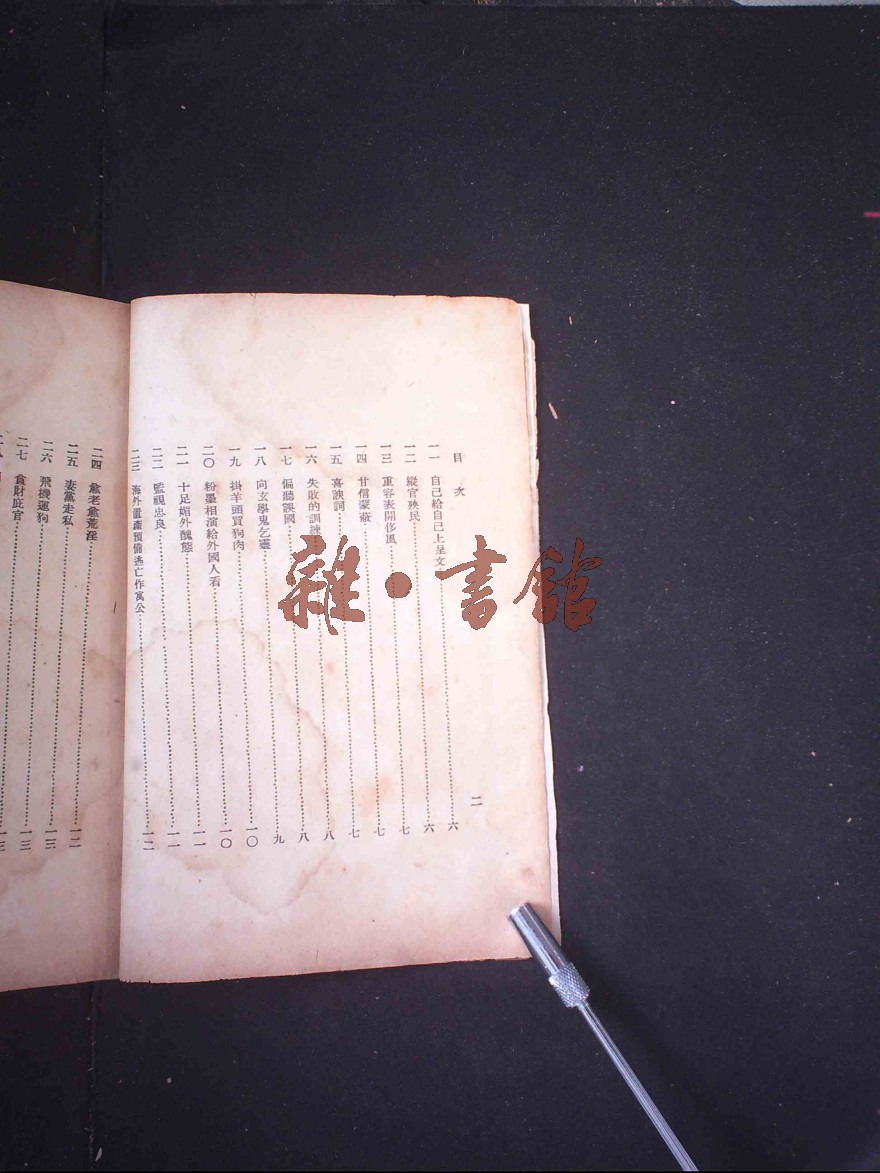 目次
一一 自己給自己上呈文 六
一二 縱官殃民 六
一三 重容表開侈風 七
一四 甘信蒙蔽 七
一五 喜諛詞 七
一六 失敗的訓練 八
一七 偏聽誤國 八
一八 向玄學鬼乞靈 九
一九 掛羊頭買狗肉 一〇
二〇 粉墨相演給外國人看 一〇
二一 十足媚外醜態 一一
二二 監視忠良 一一
二三 海外置產預備逃亡作寓公 一二
二
二四 愈老愈荒淫 一二
二五 妻黨走私 一三
二六 飛機運狗 一三
二七 貪財庇官 一三
雜·書館